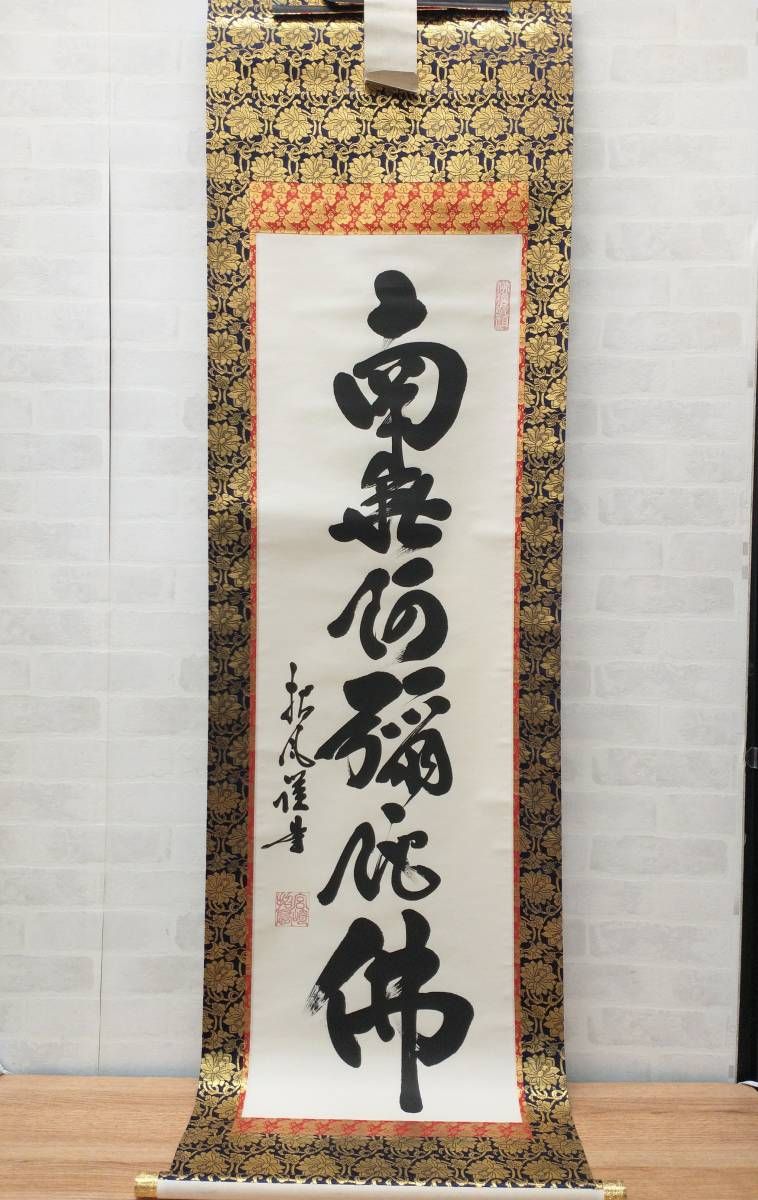 南無阿彌陀佛
秋風謹書